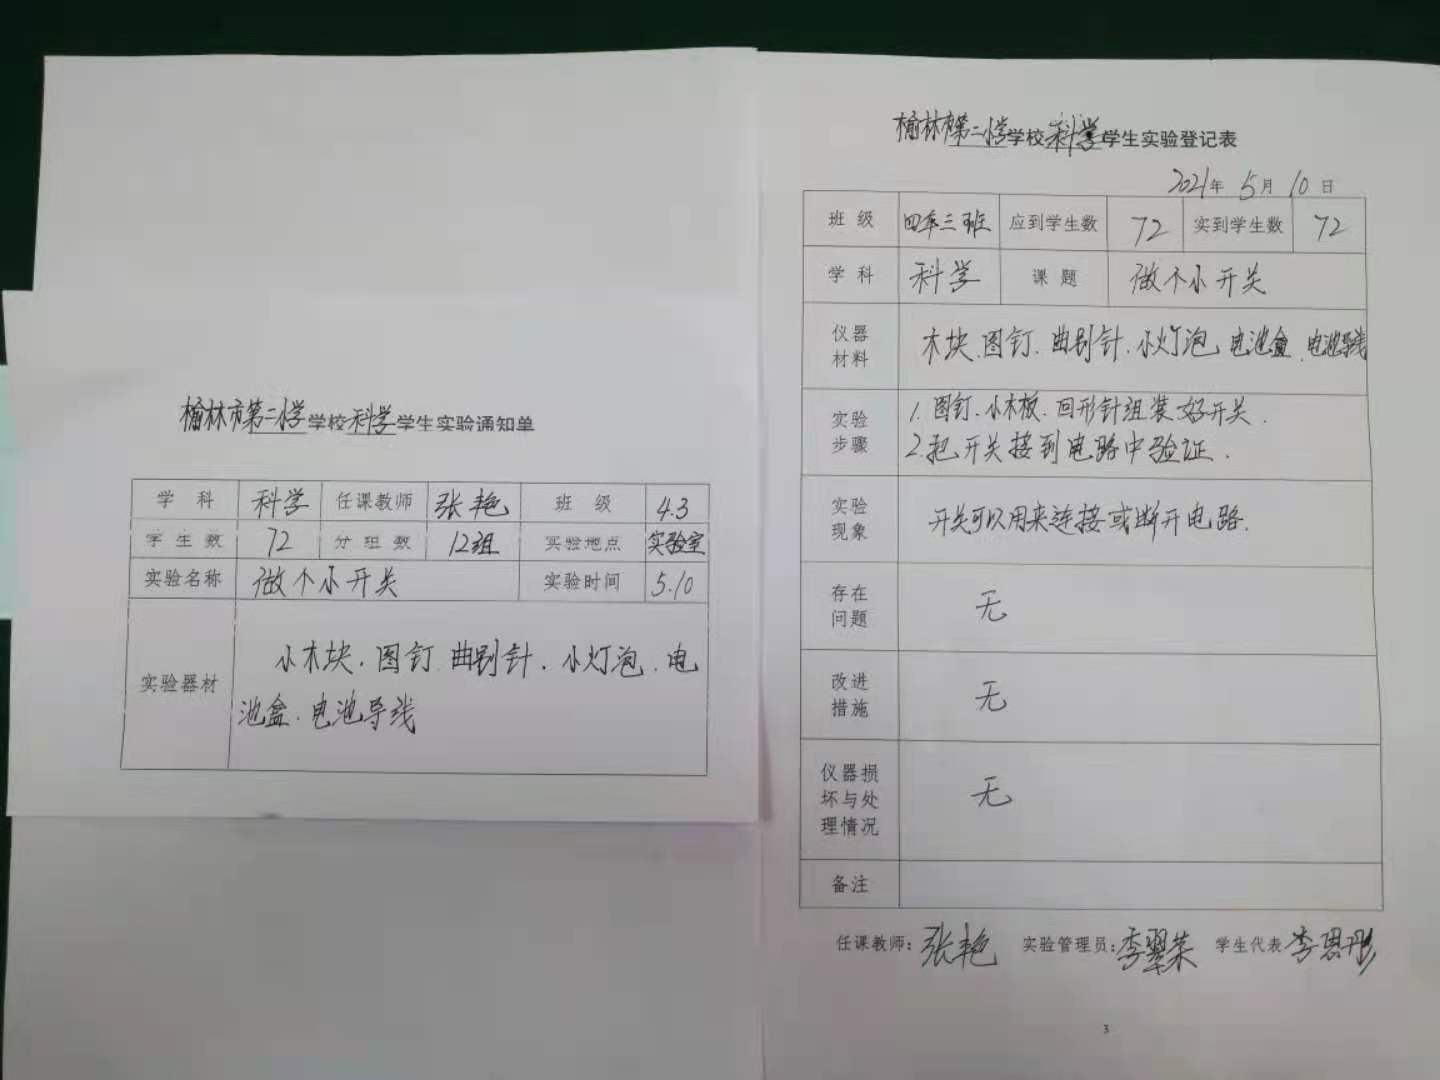 榆林市第二小学学校科学学生实验通知单
学 科 科学 任课教师 张艳 班 级 4.3
学生数 72 分组数 12组 实验地点 实验室
实验名称 做个小开关 实验时间 5.10
实验器材 小木块、图钉、曲别针、小灯泡、电
池盒、电池导线
榆林市第二小学学校科学学生实验登记表
2021年 5月 10日
班 级 四年三班 应到学生数 72 实到学生数 72
学 科 科学 课 题 做个小开关
仪器
材料
木块、图钉、曲别针、小灯泡、电池盒、电池导线
实验
步骤
1. 图钉、小木板、回形针组装好开关.
2. 把开关接到电路中验证.
实验
现象
开关可以用来连接或断开电路.
存在
问题
无
改进
措施
无
仪器损
坏与处
理情况
无
备注
任课教师：张艳 实验管理员：李翠荣 学生代表 李思彤
3